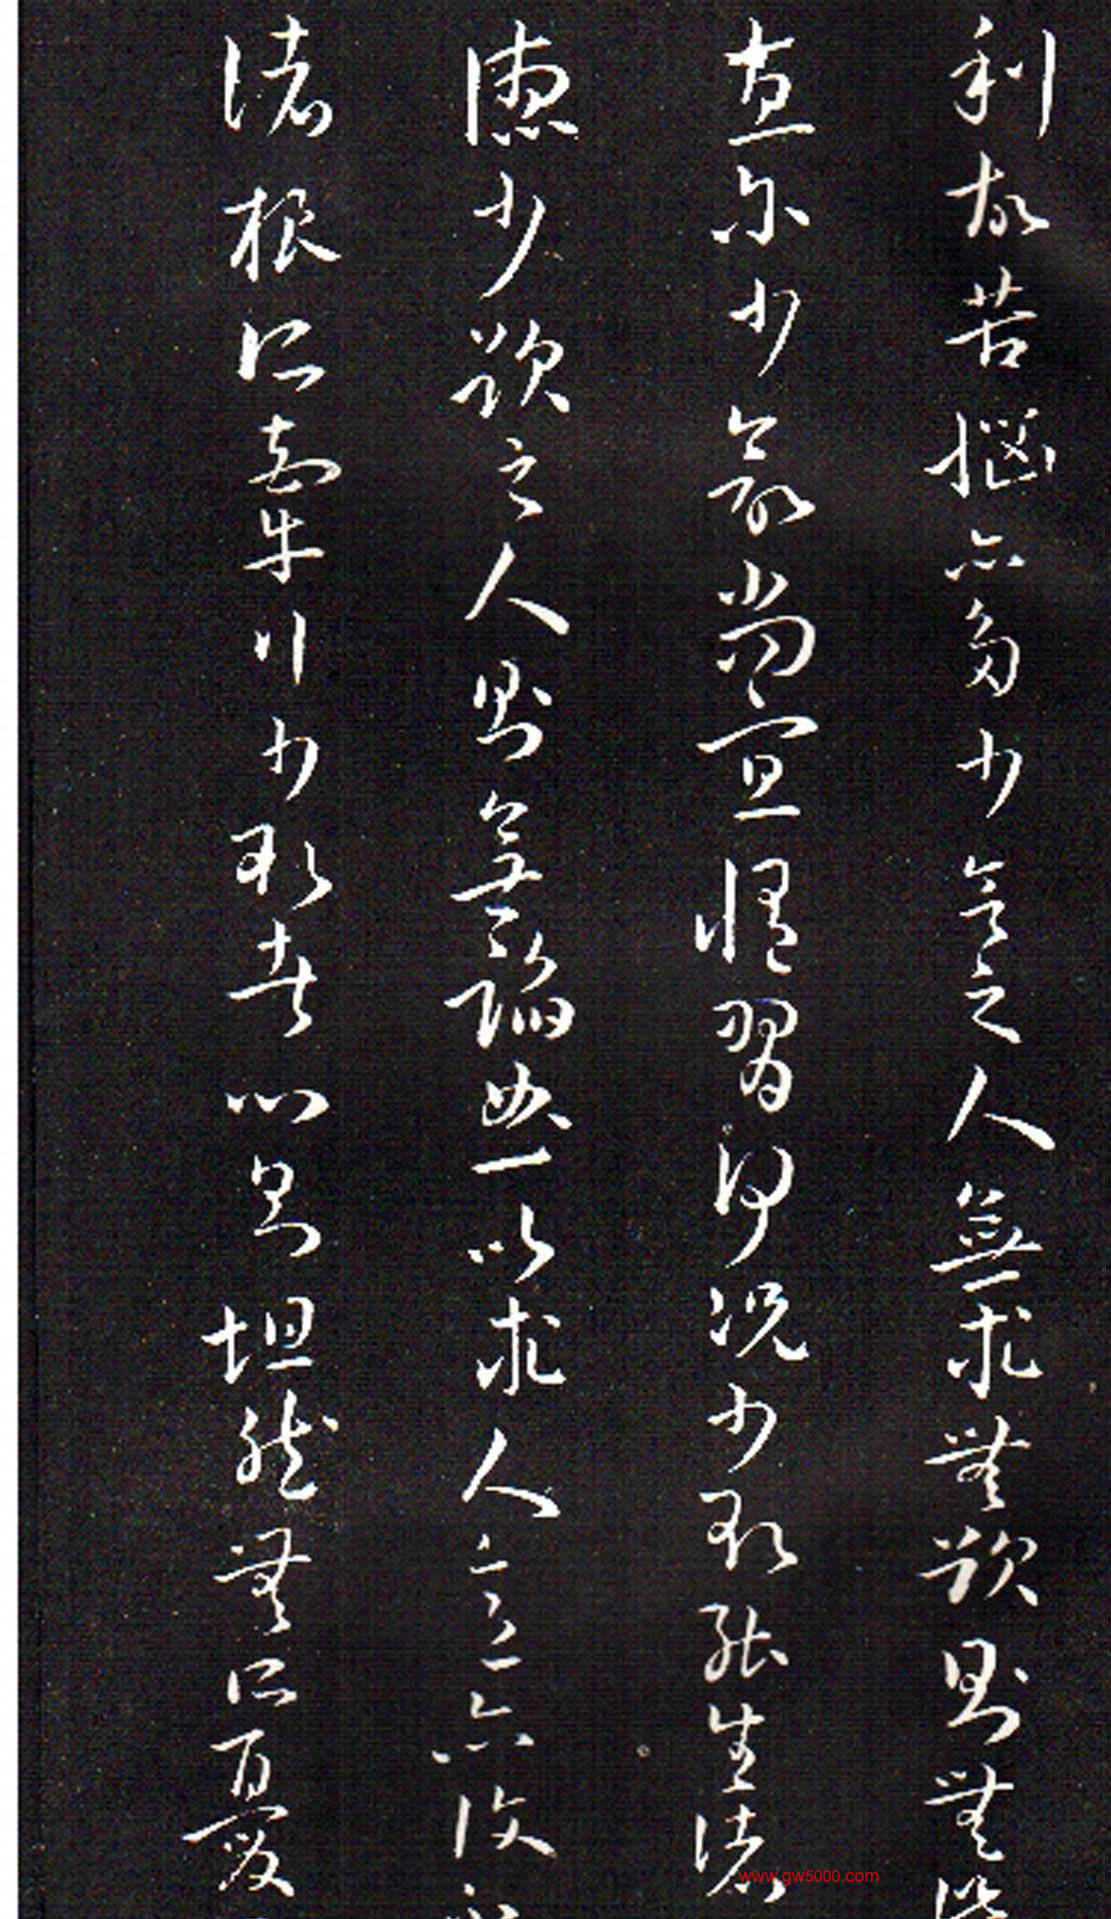 利故苦惱亦多少欲之人無求無欲則無
直爾少欲尚宜脩習何況少欲能生諸
德少欲之人則無諂曲以求人意亦復
諸根所牽行少欲者心則坦然無所憂
www.gw5000.com